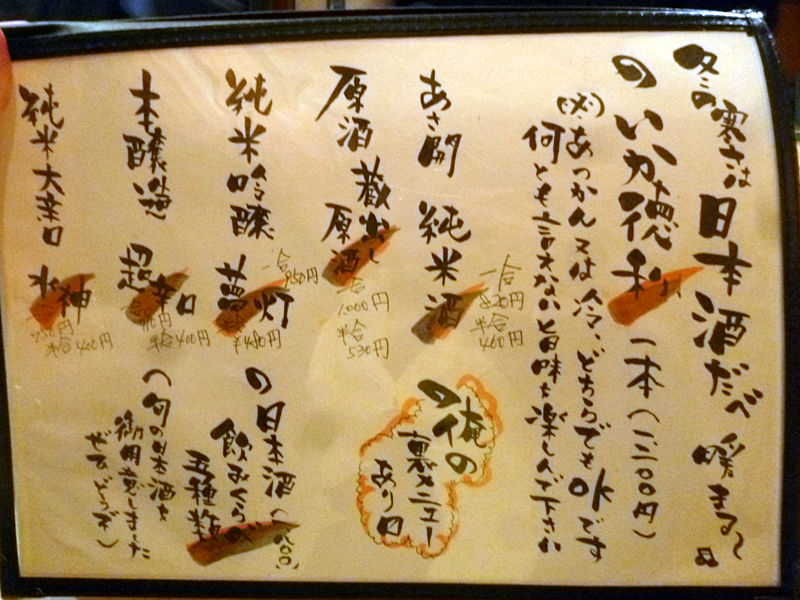 冬の寒さは日本酒だべ 暖まる〜
のいか徳利 一本(一二〇〇円)
(※)あつかん又は冷、どちらでもOKです
何とも言えない旨味を楽しんで下さい
あさ開 純米酒
一合
820円
半合
460円
原酒 蔵出し原酒
一合
1.000円
半合
530円
純米吟醸 夢灯
一合
950円
半合
¥480円
本醸造 超辛口
半合400円
純米大辛口 水神
半合400円
俺の
裏メニュー
あり口
の日本酒(八〇〇)
飲みくらべ
五種類
(旬の日本酒を
御用意しました
ぜひどうぞ)